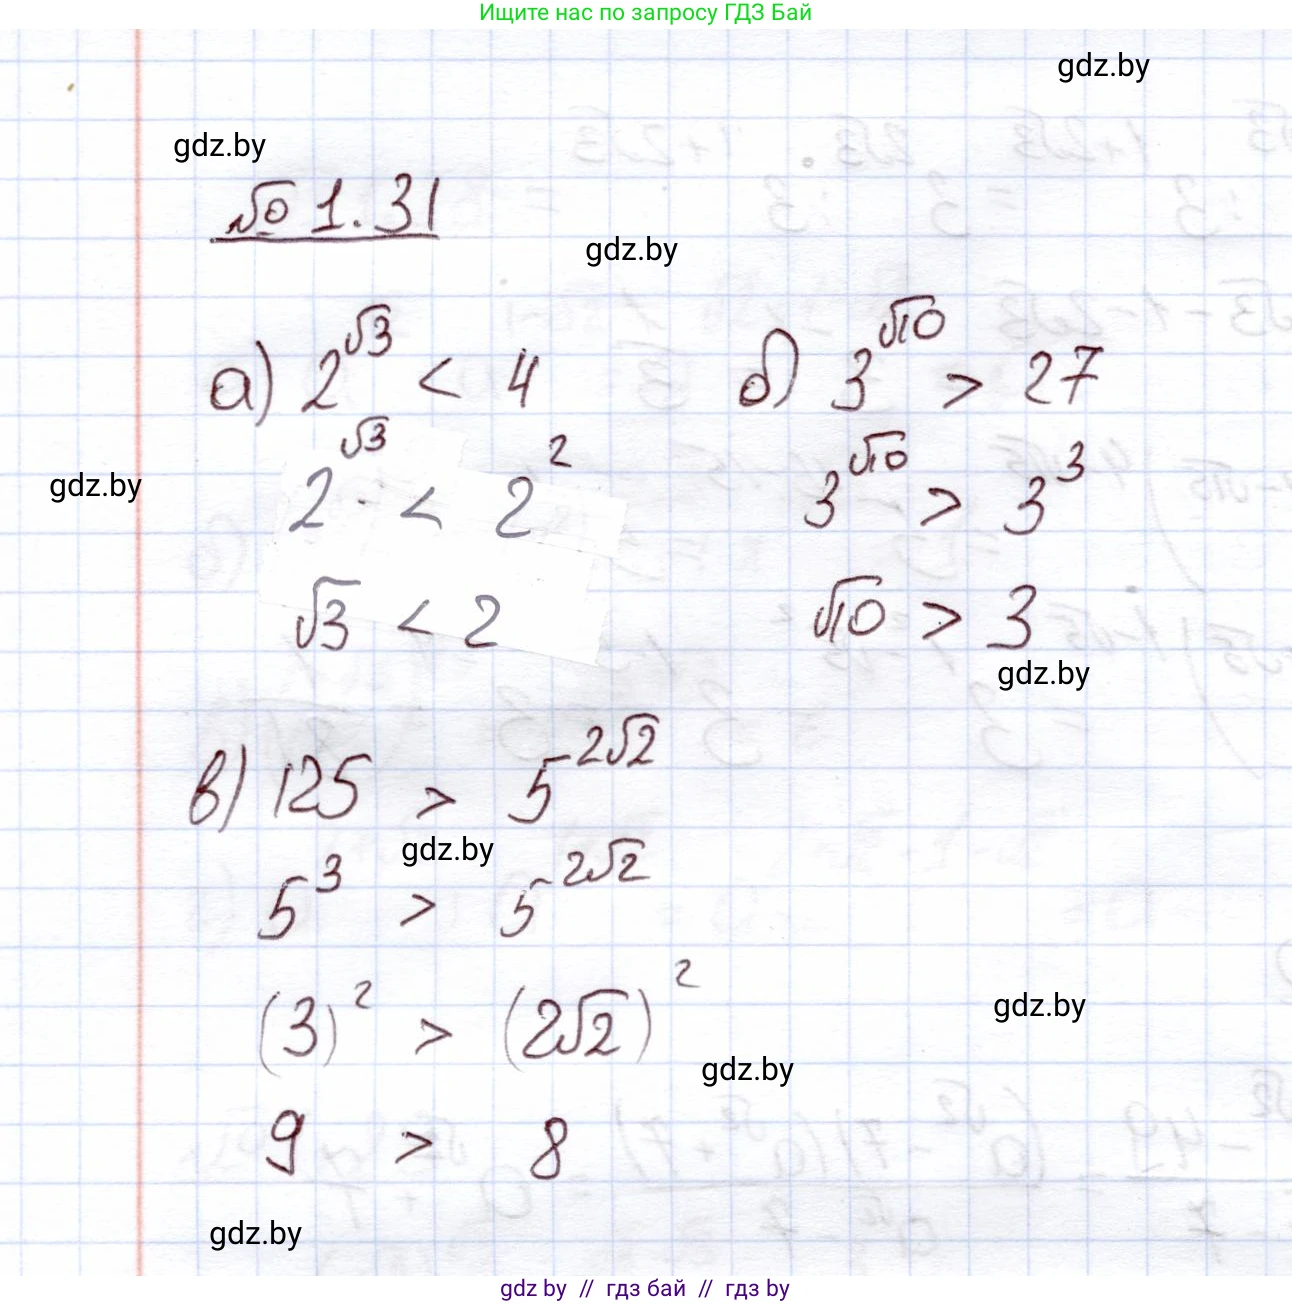 Ищите нас по запросу ГДЗ Бай
gdz.by
gdz.by
№ 1.31
gdz.by
а) 2^√3 < 4
б) 3^√10 > 27
2^√3 < 2^2
3^√10 > 3^3
gdz.by
√3 < 2
√10 > 3
gdz.by
в) 125 > 5^2√2
gdz.by
5^3 > 5^2√2
(3)^2 > (2√2)^2
gdz.by
gdz.by
9 > 8
gdz.by
gdz by // гдз бай // гдз by